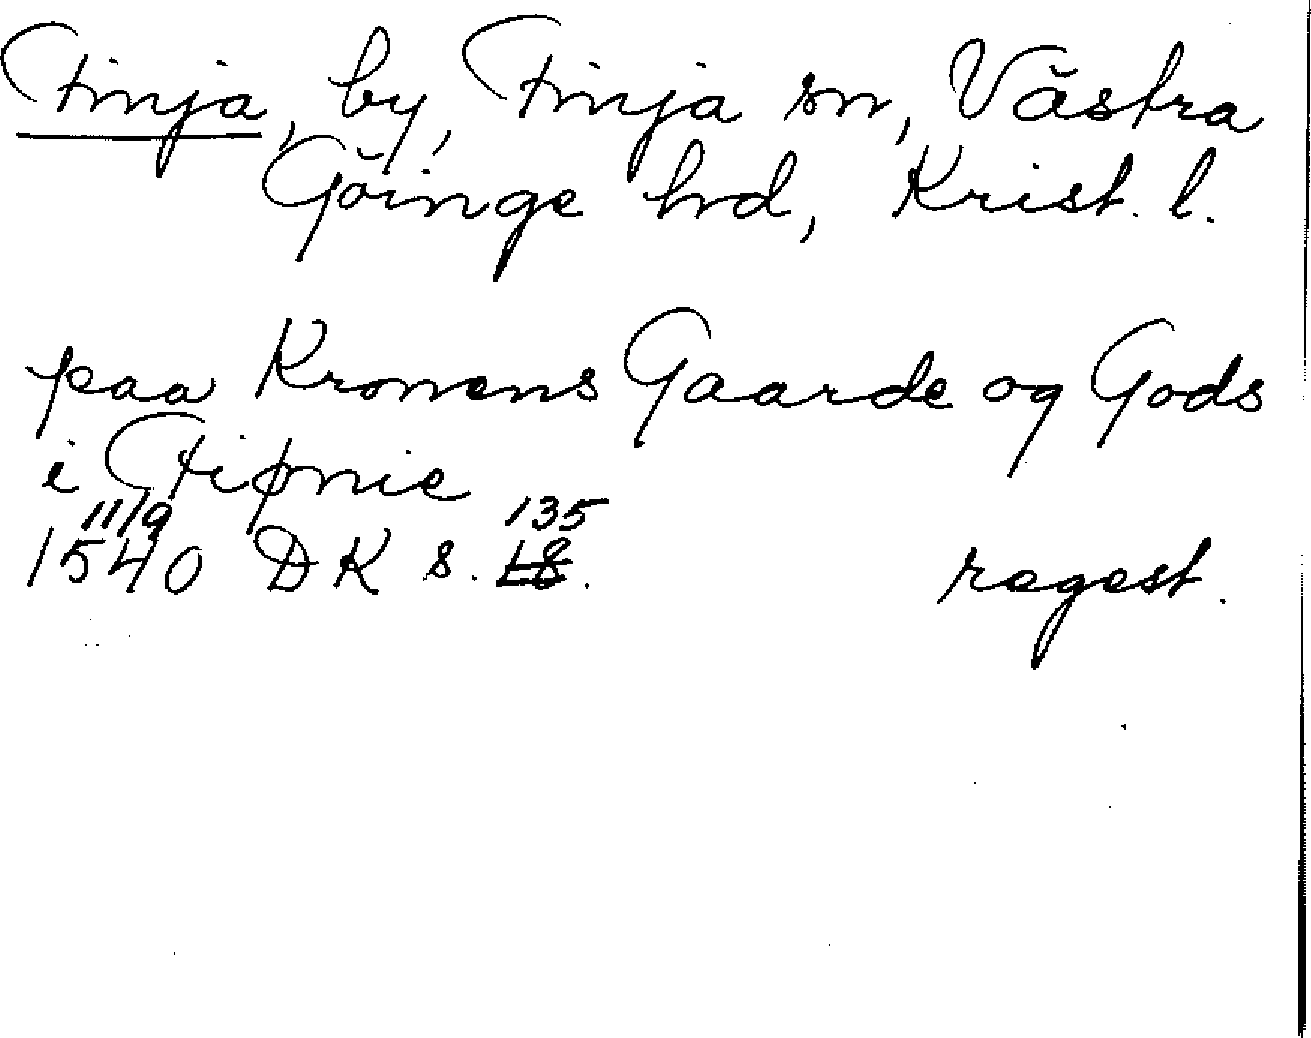 Finja, by, Finja sn, Västra
Göinge hrd, Krist. l.
paa Kronens Gaarde og Gods
i Fiønie
11/9 135
1540 DK s. 18.
regest.